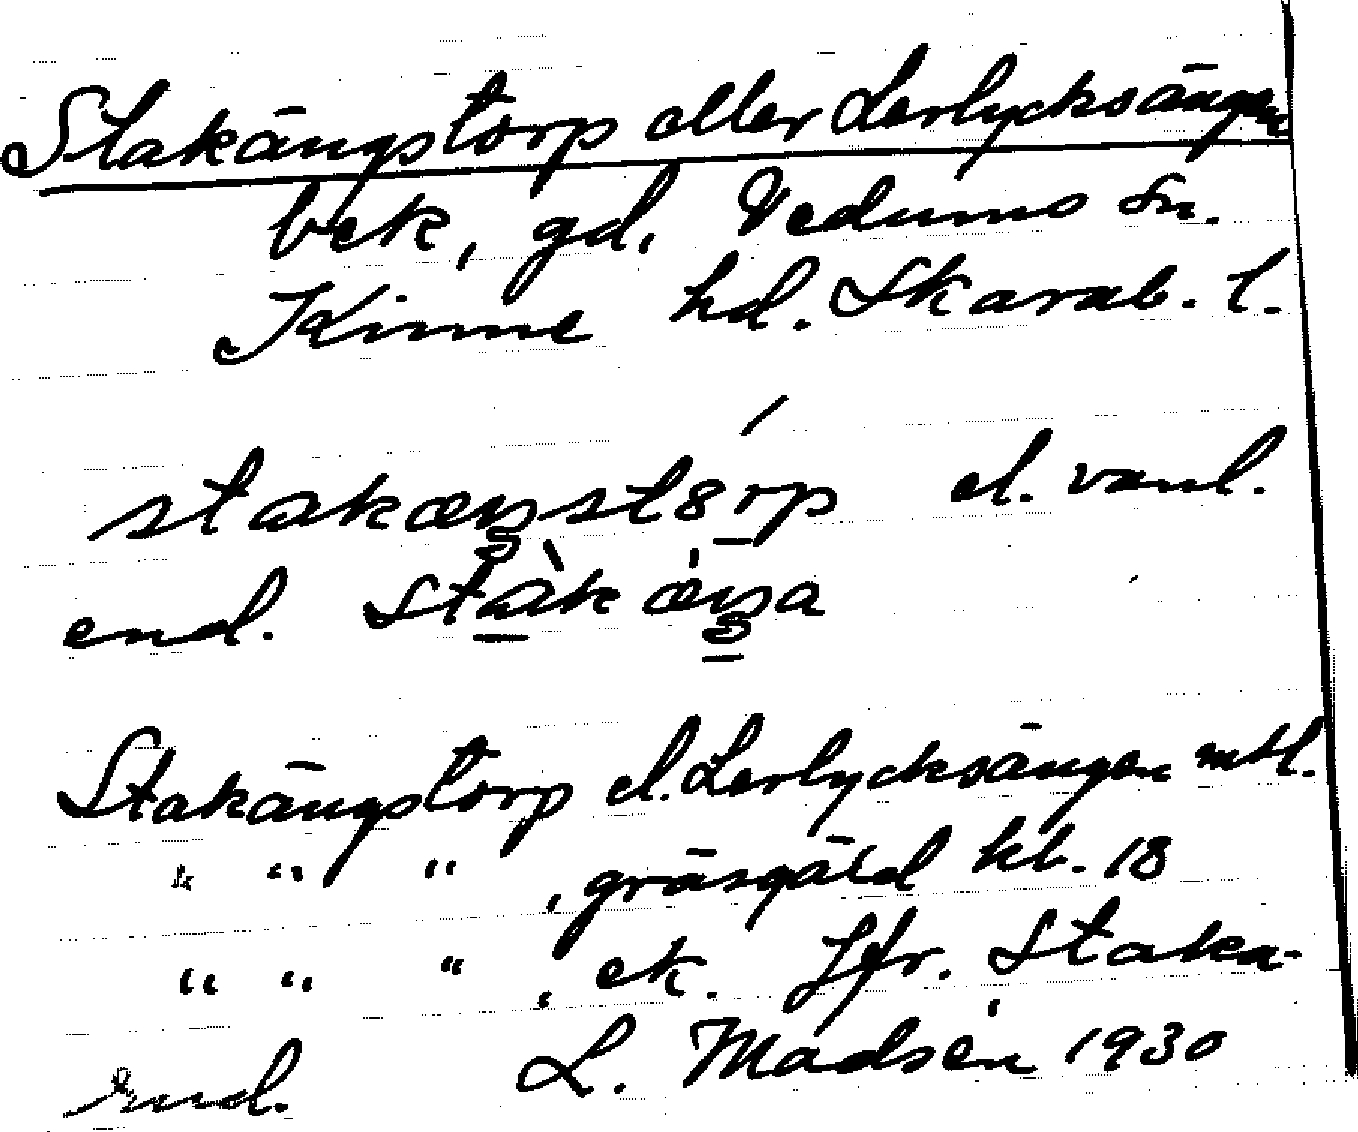 Stakängstorp eller Lerlycksängen
bek, gd, Vedums sn.
Kinne hd. Skarab. l.
stakæŋstórp el. vanl.
end. stàkæŋa
Stakängstorp el. Lerlycksängen mtl.
" " " , gräsgäld kb. 18
" " " , ek. Jfr. Staka-
rud. L. Madsén 1930